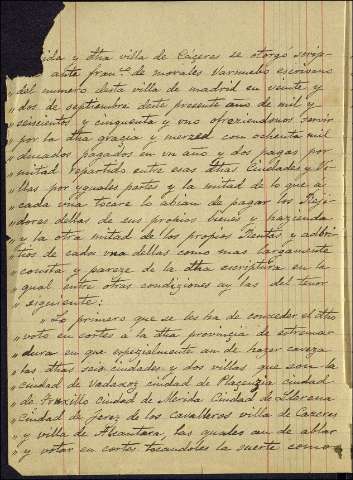 ida y dha villa de Cáceres se otorgó scrip-
ante fran.co de morales Varnuebo escrivano
" del numero desta villa de madrid en veinte y
" dos de septiembre deste presente ano de mil y
" seiscientos y cinquenta y uno ofreziendonos servir
" por la dha gracia y merzed com ochenta mil
" ducados pagados en un año y dos pagas por
" mitad repartido entre esas dhas Ciudades y Vi-
" llas por yguales partes y la mitad de lo que a
" cada una tocare la abian de pagar los Reji-
" dores dellas de sus propios bienes y hazienda
" y la otra mitad de los propios Rentas y adbi-
" trios de cada una dellas como mas largamente
" consta y pareze de la dha escriptura en la
" qual entre otras condiziones ay las del tenor
" siguiente:
" Lo primero que se les ha de conceder el dho
" voto en cortes a la dha provincia de estrema-
" dura en que espezialmente an de hazer caveza
" las dhas seis ciudades y dos villas que son la
" ciudad de Vadaxoz ciudad de Placenzia ciudad
" de Truxillo Ciudad de Merida Ciudad de Llerena
" Ciudad de jerez de los Cavalleros villa de Cazeres
" y villa de Alcantara, las quales an de ablar
" y votar en cortes tocandoles la suerte como